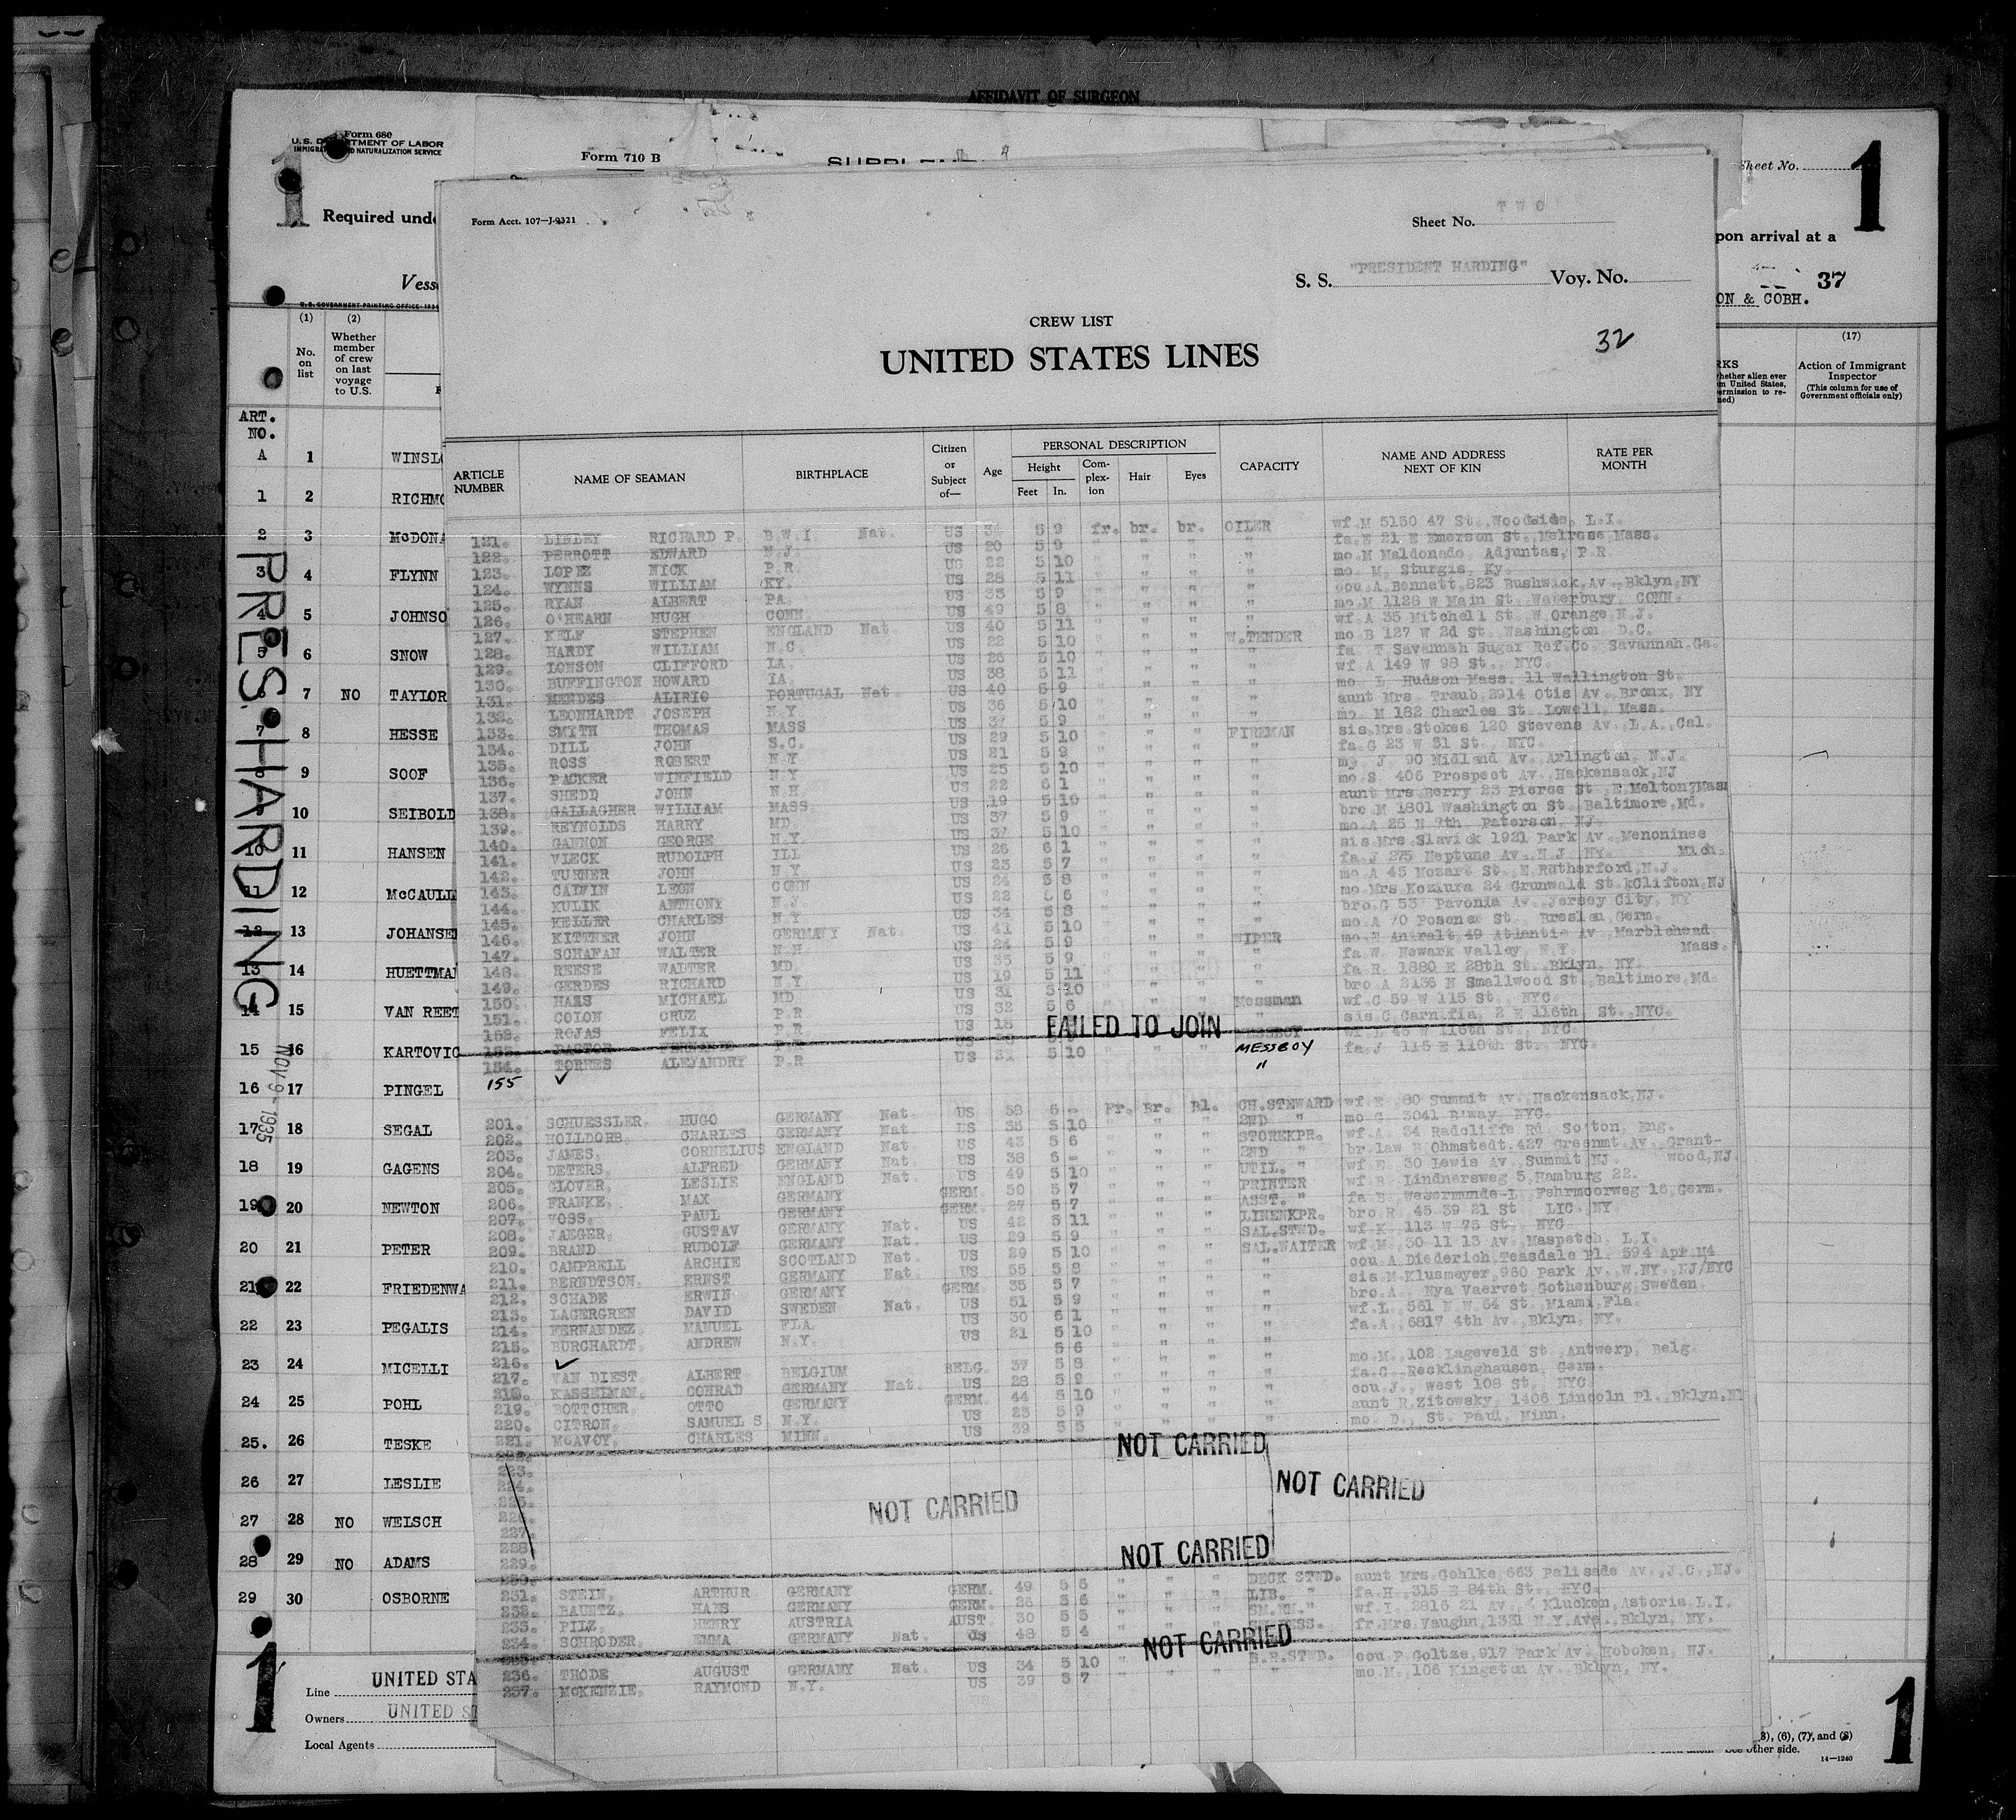 AFFIDAVIT OF SURGEON
Form 680
U.S. DEPARTMENT OF LABOR
IMMIGRATION AND NATURALIZATION SERVICE
Form 710 B
Sheet No.
1
1
Required unde
pon arrival at a
Vess
37
U.S. GOVERNMENT PRINTING OFFICE: 1934
ON & COBH.
(1) No. on list
(2) Whether member of crew on last voyage to U.S.
RKS
(17) Action of Immigrant Inspector
(This column for use of Government officials only)
ART. NO.
A 1 WINSL
1 2 RICHMO
2 3 McDONA
3 4 FLYNN
4 5 JOHNSO
5 6 SNOW
6 7 NO TAYLOR
7 8 HESSE
9 SOOF
10 SEIBOLD
10 11 HANSEN
11 12 McCAULL
12 13 JOHANSE
13 14 HUETTMA
14 15 VAN REET
15 16 KARTOVIC
16 17 PINGEL
17 18 SEGAL
18 19 GAGENS
19 20 NEWTON
20 21 PETER
21 22 FRIEDENWA
22 23 PEGALIS
23 24 MICELLI
24 25 POHL
25. 26 TESKE
26 27 LESLIE
27 28 NO WELSCH
28 29 NO ADAMS
29 30 OSBORNE
PRES. HARDING
NOV 9 - 1935
1
Line UNITED STA
Owners UNITED ST
Local Agents
Form Acct. 107—J-9321
Sheet No. TWO
S. S. "PRESIDENT HARDING" Voy. No.
32
CREW LIST
UNITED STATES LINES
ARTICLE NUMBER
NAME OF SEAMAN
BIRTHPLACE
Citizen or Subject of—
Age
PERSONAL DESCRIPTION
Height
Feet In.
Complexion
Hair
Eyes
CAPACITY
NAME AND ADDRESS NEXT OF KIN
RATE PER MONTH
121. LINLEY RICHARD P. B.W.I. Nat. US 5 9 fr. br. br. OILER wf.M 5150 47 St. Woodside, L.I.
122. PERROTT EDWARD N.J. US 20 5 9 " " " " fa.E 21 E Emerson St. Melrose Mass.
123. LOPEZ NICK P.R. US 22 5 10 " " " " mo.M Maldonado, Adjuntas, P.R.
124. WYNNS WILLIAM KY. US 28 5 11 " " " " mo. M. Sturgis, Ky.
125. RYAN ALBERT PA. US 35 5 9 " " " " cou.A.Bennett 823 Bushwick Av. Bklyn, NY
126. O'HEARN HUGH CONN. US 49 5 8 " " " " mo.M 1128 W Main St. Waterbury CONN.
127. KELF STEPHEN ENGLAND Nat. US 40 5 11 " " " " wf.A 35 Mitchell St. W Orange N.J.
128. HARDY WILLIAM N.C. US 22 5 10 " " " W.TENDER mo B 127 W 2d St. Washington D.C.
129. LONSON CLIFFORD LA. US 26 5 10 " " " " fa. T Savannah Sugar Ref.Co. Savannah.Ga.
130. BUFFINGTON HOWARD IA. US 38 5 11 " " " " wf A 149 W 98 St. NYC.
131. MENDES ALIRIO PORTUGAL Nat. US 40 5 9 " " " " mo L Hudson Mass. 11 Wallington St.
132. LEONHARDT JOSEPH N.Y US 36 5 10 " " " " aunt Mrs. Traub 2914 Otis Av. Bronx, NY
133. SMITH THOMAS MASS US 37 5 9 " " " " mo. M 182 Charles St. Lowell, Mass.
134. DILL JOHN S.C. US 29 5 10 " " " FIREMAN sis.Mrs.Stokes 120 Stevens Av. L.A. Cal.
135. ROSS ROBERT N.Y US 21 5 9 " " " " fa.G 23 W 31 St. NYC.
136. PACKER WINFIELD N.Y US 25 5 10 " " " " mo J. 90 Midland Av. Arlington, N.J.
137. SHEDD JOHN N.H. US 22 6 1 " " " " mo.S. 406 Prospect Av. Hackensack,NJ
138. GALLAGHER WILLIAM MASS. US 19 5 10 " " " " aunt Mrs Berry 23 Pierce St E Melton,Mass
139. REYNOLDS HARRY MD. US 37 5 9 " " " " bro.M 1801 Washington St. Baltimore,Md.
140. GANNON GEORGE N.Y. US 5 10 " " " " mo.A 25 N 7th Paterson, NJ.
141. VIECK RUDOLPH ILL US 26 6 1 " " " " sis Mrs.Slavick 1921 Park Av. Menoninee Mich.
142. TURNER JOHN N Y US 23 5 7 " " " " fa.J 275 Neptune Av. N.J. NY.
143. CALVIN LEON CONN US 24 5 8 " " " " mo A 45 Mozart St. E Rutherford,N.J.
144. KULIK ANTHONY N.J US 22 " " " " mo Mrs Koziura 24 Grunwald St. Clifton,NJ
145. KELLER CHARLES N.Y. US 34 5 8 " " " " bro.G 537 Pavonia Av. Jersey City, NY
146. KITTNER JOHN GERMANY Nat. US 41 5 10 " " " " mo.A 70 Posener St. Breslau,Germ.
147. SCHAFAN WALTER N.H. US 24 5 9 " " " WIPER mo.E Antralt 49 Atlantic Av Marblehead Mass.
148. REESE WALTER MD. US 35 5 9 " " " " fa W. Newark Valley, N.Y.
149. GERDES RICHARD N.Y US 19 5 11 " " " " fa R. 1880 E 28th St. Bklyn, NY.
150. HAAS MICHAEL MD. US 31 5 10 " " " " bro A 2136 N Smallwood St. Baltimore,Md.
151. COLON CRUZ P.R US 32 5 6 " " " Messman wf.C 59 W 115 St. NYC.
152. ROJAS FELIX P.R. US 18 " sis.C.Carnifia. 2 E 116th St. NYC.
FAILED TO JOIN
154. TORRES ALEJANDRY P.R US 21 5 10 MESSBOY fa.J 115 E 110th St. NYC.
155 ✓ "
201. SCHUESSLER, HUGO GERMANY Nat. US 38 6 - Fr. Br. Bl. CH.STEWARD wf E. 80 Summit Av. Hackensack,NJ.
202. HOLLDORB, CHARLES GERMANY Nat. US 35 5 10 " " " 2ND " mo G. 3041 B'way, NYC.
203. JAMES, CORNELIUS ENGLAND Nat. US 43 5 6 " " " STOREKPR. wf.A. 34 Radcliffe Rd. So'ton, Eng.
204. DETERS, ALFRED GERMANY Nat. US 38 6 - " " " 2ND " br.law H Ohmstedt.427 Gresnmt Av. Grantwood,NJ.
205. GLOVER, LESLIE ENGLAND Nat. US 49 5 10 " " " UTIL. " wf E. 30 Lewis Av. Summit NJ.
206. FRANKE, MAX GERMANY GERM. 50 5 7 " " " PRINTER wf B. Lindnersweg 5 Hamburg 22.
207. VOSS, PAUL GERMANY GERM. 27 5 7 " " " ASST. " fa B. Wesermunde-L Fehrmoorweg 16,Germ.
208. JAEGER, GUSTAV GERMANY Nat. US 42 5 11 " " " LINENKPR. bro.R. 45 39 21 St LIC. NY.
209. BRAND RUDOLF GERMANY Nat. US 29 5 9 " " " SAL.STWD. wf K. 113 W 75 St. NYC.
210. CAMPBELL ARCHIE SCOTLAND Nat. US 29 5 10 " " " SAL.WAITER wf M. 30-11 13 Av. Maspeth, L.I.
211. BERNDTSON, ERNST GERMANY Nat. US 55 5 8 " " " " cou A.Diederich Teasdale Pl. 594 Apt M4
212. SCHADE ERWIN GERMANY GERM. 35 5 7 " " " " sis M.Klusmeyer 960 Park Av. W.NY. NJ/NYC
213. LAGERGREN DAVID SWEDEN Nat. US 51 5 9 " " " " bro.A. Nya Vaervet Gothenburg,Sweden.
214. FERNANDEZ, MANUEL FLA. US 30 6 1 " " " " wf.L. 561 N W 64 St. Miami,Fla.
215. BURCHARDT, ANDREW N.Y. US 21 5 10 " " " " fa.A. 6817 4th Av. Bklyn, NY.
216. ✓ 5 6
217. VAN DIEST, ALBERT BELGIUM BELG. 37 5 8 " " " " mo.M. 102 Lageveld St. Antwerp, Belg.
218. KASSELMAN, CONRAD GERMANY Nat. US 28 5 9 " " " " fa.C. Recklinghausen, Germ.
219. BOTTCHER, OTTO GERMANY GERM. 44 5 10 " " " " cou J. West 108 St. NYC.
220. CITRON, SAMUEL S. N.Y. US 23 5 9 " " " " aunt R.Zitowsky, 1406 Lincoln Pl. Bklyn,
221. McAVOY, CHARLES MINN. US 39 5 5 " " " " mo. D., St. Paul, Minn.
NOT CARRIED
223.
224.
225.
226.
227.
228.
229.
NOT CARRIED
NOT CARRIED
NOT CARRIED
231. STEIN, ARTHUR GERMANY GERM. 49 5 6 " " " DECK STWD. aunt Mrs Gehlke,663 Palisade Av. J.C.,NJ.
232. BAUNTZ, HANS GERMANY GERM. 26 5 6 " " " LIB. " fa.H. 315 E 84th St. NYC.
233. PILZ, HENRY AUSTRIA AUST. 30 5 5 " " " SM.RM." wf I. 2816 21 Av. % Klucken, Astoria L.I.
234. SCHRODER, EMMA GERMANY Nat. US 48 5 4 " " " fr.Mrs.Vaughn,1331 N.Y.Ave. Bklyn, NY.
NOT CARRIED
236. THODE AUGUST GERMANY Nat. US 34 5 10 " " " B.R.STWD. cou P.Goltze,917 Park Av. Hoboken, NJ.
237. McKENZIE, RAYMOND N.Y. US 39 5 7 " " " " mo.M. 106 Kingston Av. Bklyn, NY.
3), (6), (7), and (8)
See other side.
14—1240
1